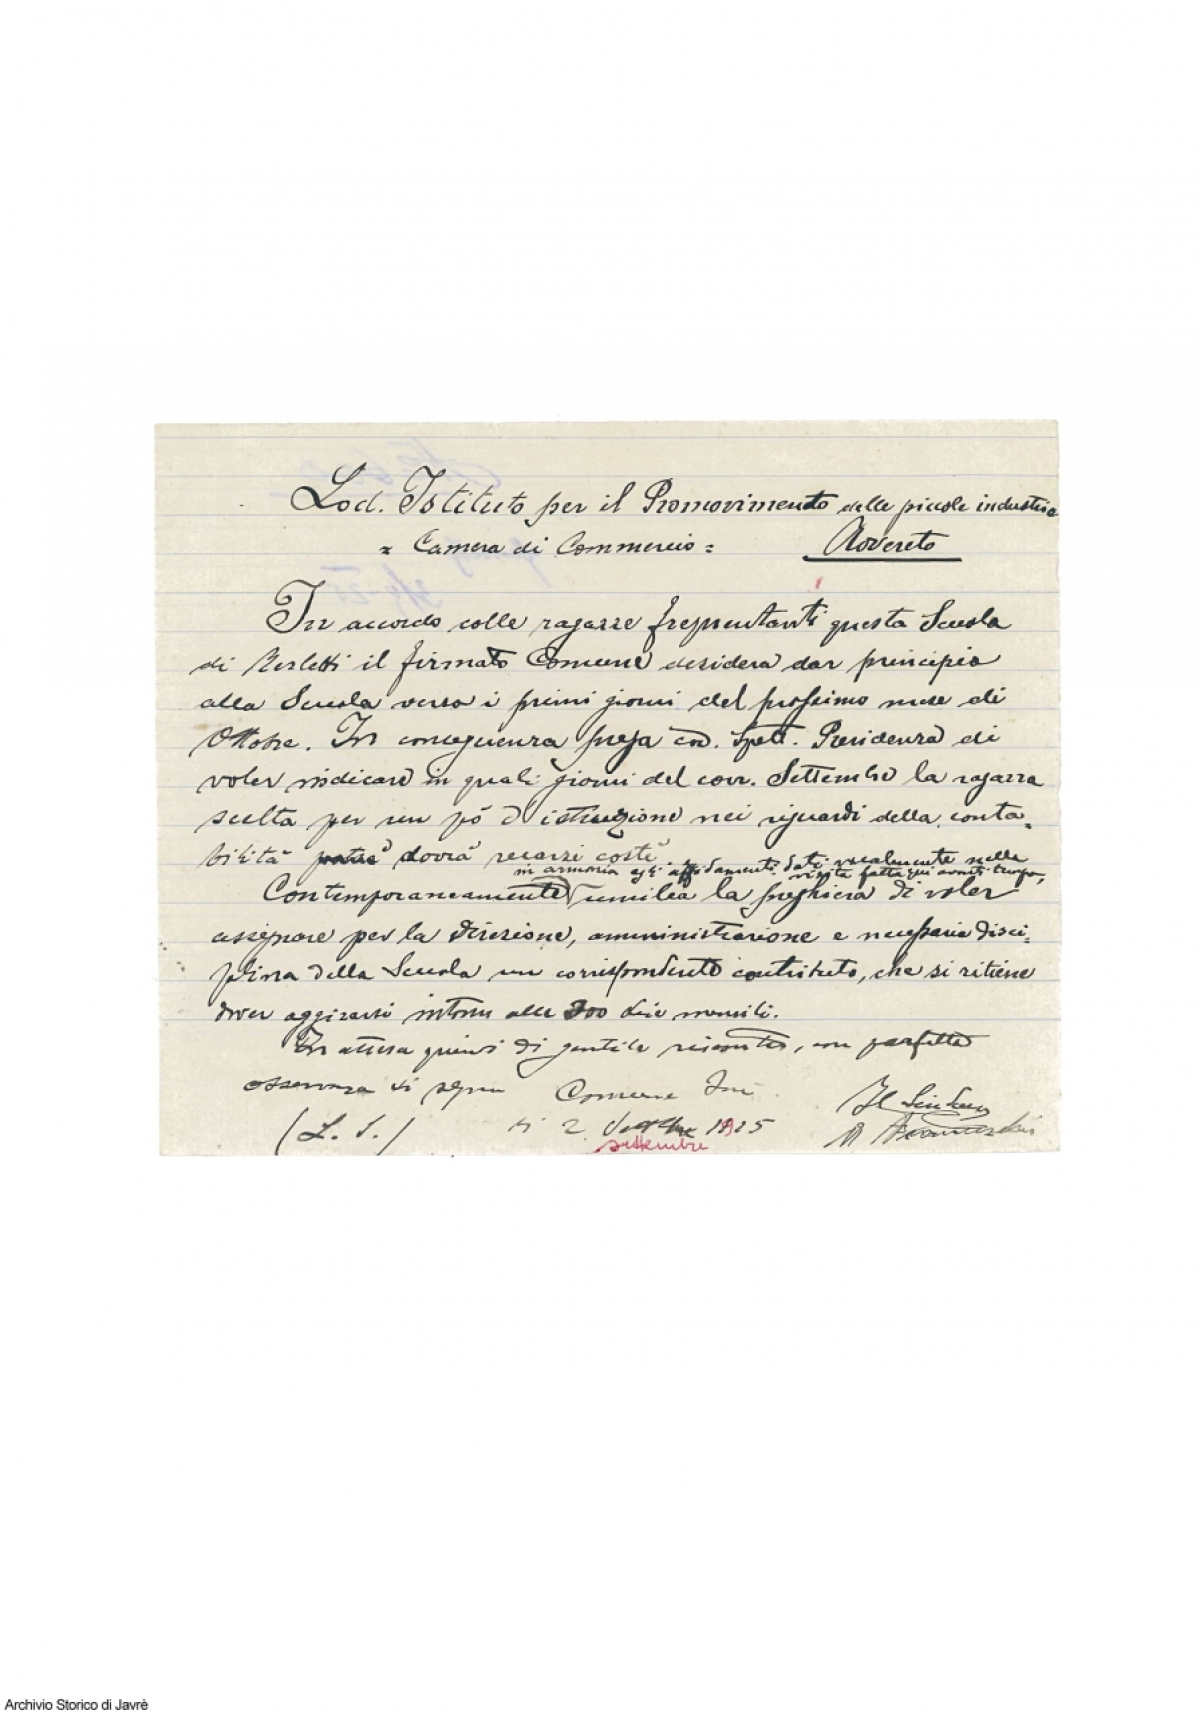 Lod. Istituto per il Promovimento delle piccole industrie
= Camera di Commercio = Rovereto
In accordo colle ragazze frequentanti questa Scuola
di Merletti il firmato Comune desidera dar principio
alla Scuola verso i primi giorni del prossimo mese di
Ottobre. In conseguenza prega cod. Spett. Presidenza di
voler indicare in quali giorni del corr. Settembre la ragazza
scelta per un pó d'istruzione nei riguardi della conta=
bilità potrà dovrà recarsi costì
in armonia agli affidamenti dati vocalmente nella
visita fatta qui avanti tempo,
Contemporaneamente umilia la preghiera di voler
assegnare per la direzione, amministrazione e necessaria disci=
plina della Scuola un corrispondente contributo, che si ritiene
dover aggirarsi intorno alle 300 Lire mensili.
In attesa quindi di gentile riscontro, con perfetta
osservanza si segna Comune
Il Sindaco
(L. S.) li 2 1925
settembre
Archivio Storico di Javrè